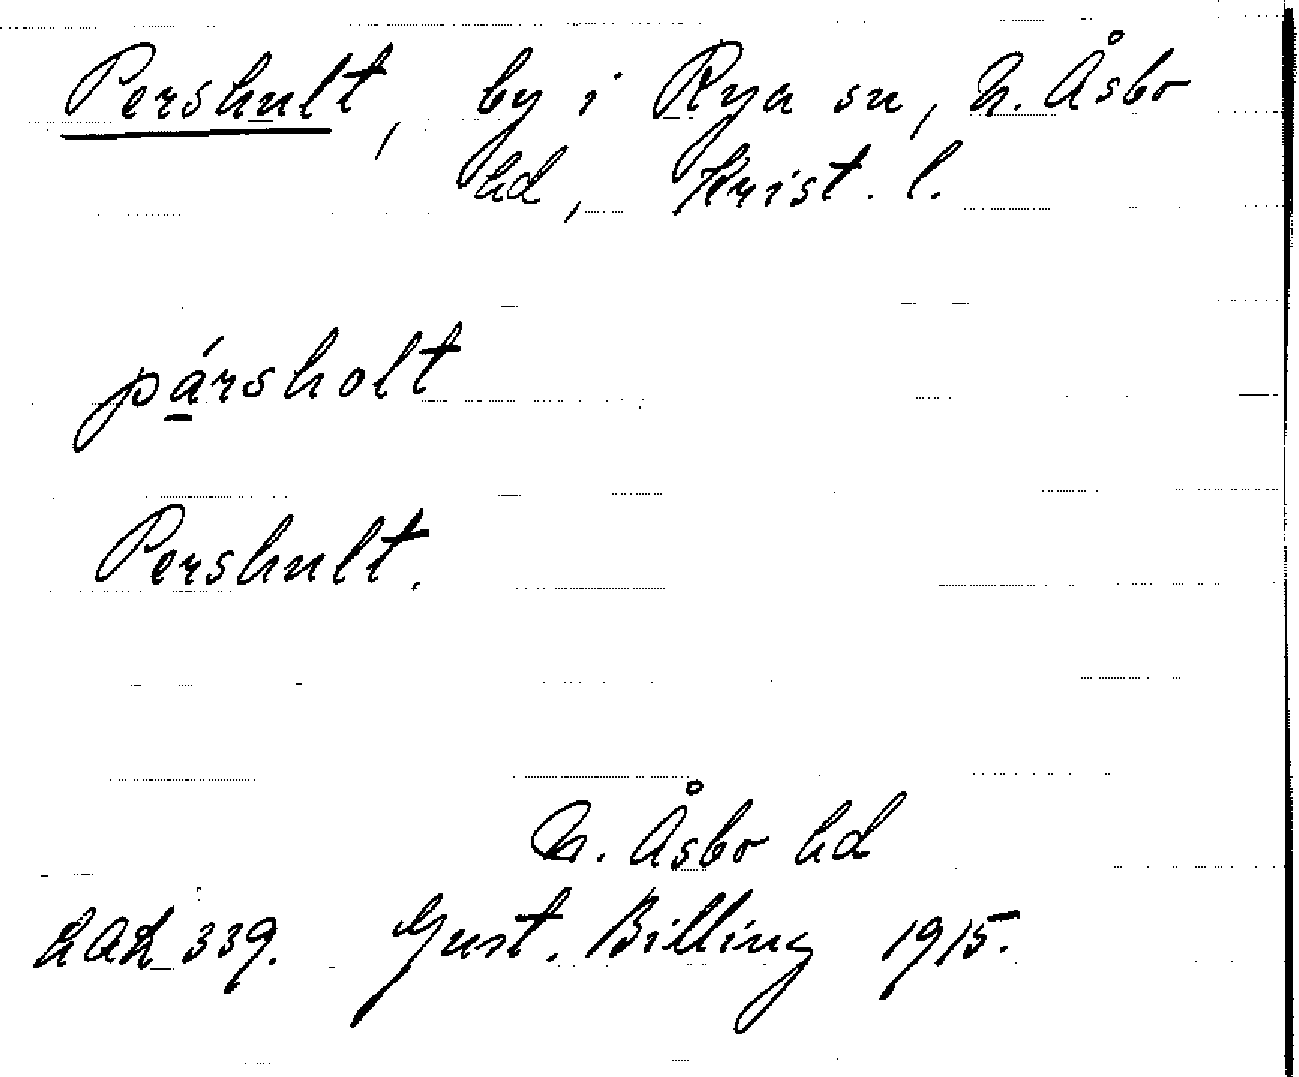 Pershult, by i Rya sn, N. Åsbo
hd, Krist. l.
pá̱rsholt
Pershult.
N. Åsbo hd
LAL 339. Gust. Billing 1915.